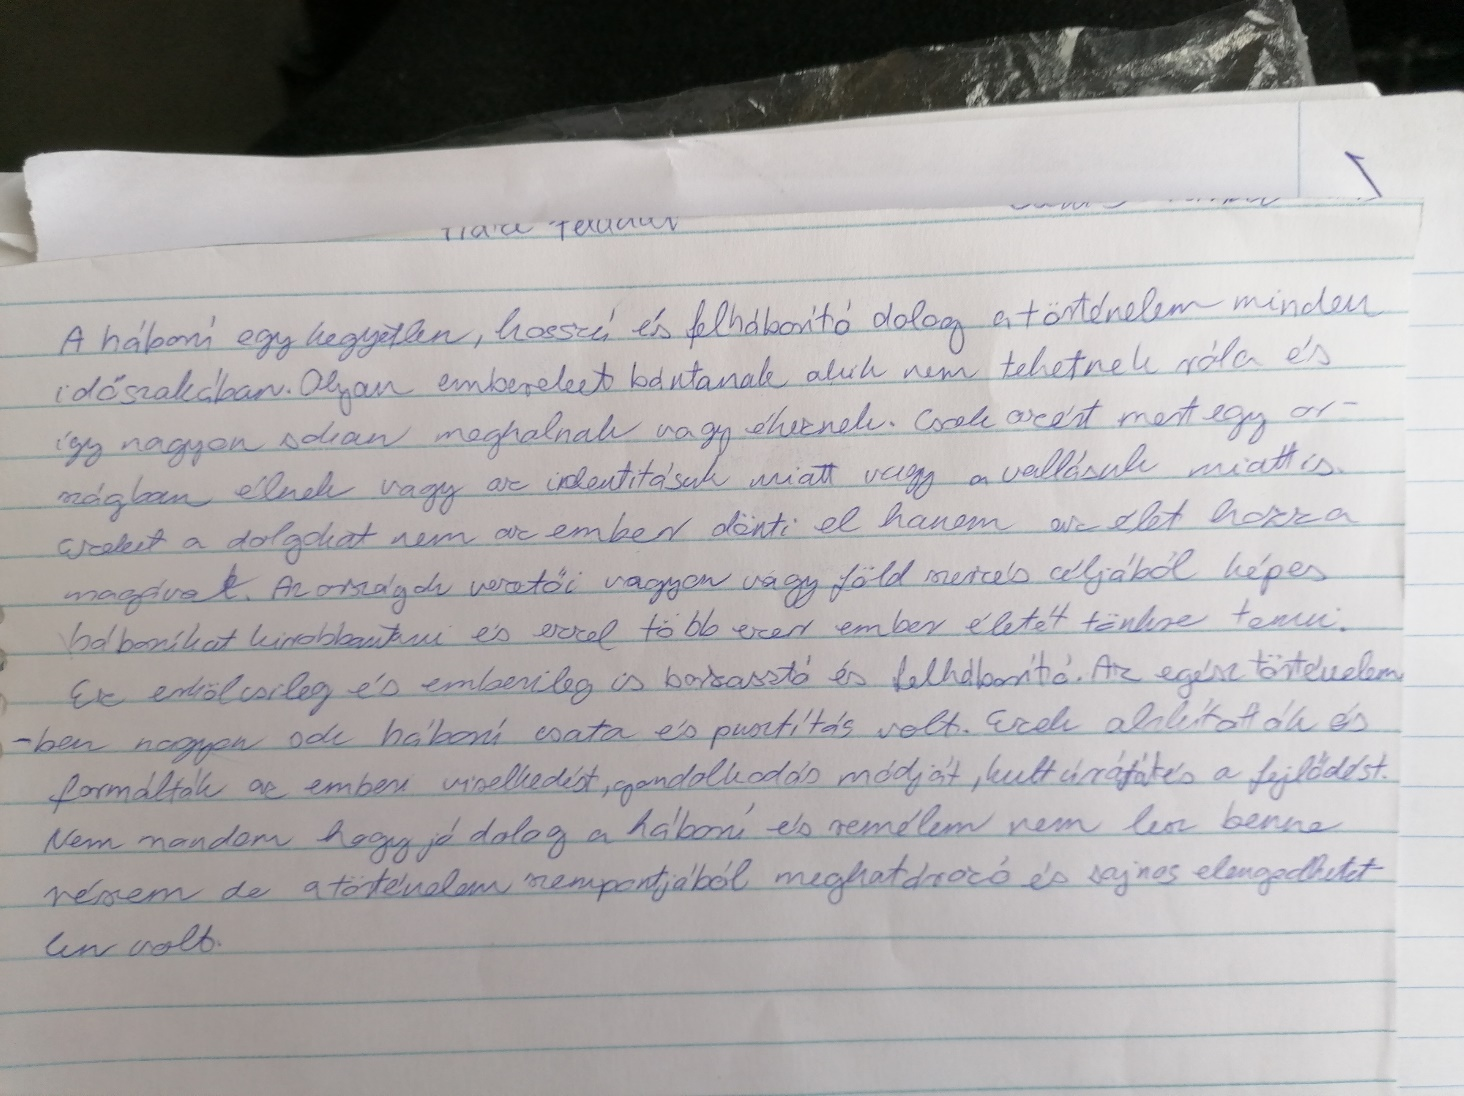 A háború egy kegyetlen, hosszú és felháborító dolog a történelem minden
időszakában. Olyan embereket bántanak akik nem tehetnek róla és
így nagyon sokan meghalnak vagy éheznek. Csak azért mert egy or-
szágban élnek vagy az identitásuk miatt vagy a vallásuk miatt is.
Ezeket a dolgokat nem az ember dönti el hanem az élet hozza
magával. Az országok vezetői vagyon vagy föld szerzés céljából képes
háborúkat kirobbantani és ezzel több ezer ember életét tönkre tenni.
Ez erkölcsileg és emberileg is borzasztó és felháborító. Az egész történelem
-ben nagyon sok háború csata és pusztítás volt. Ezek alakították és
formálták az emberi viselkedést, gondolkodás módját, kultúráját és a fejlődést.
Nem mondom hogy jó dolog a háború és remélem nem lesz benne
részem de a történelem szempontjából meghatározó és sajnos elengedhetet
len volt.